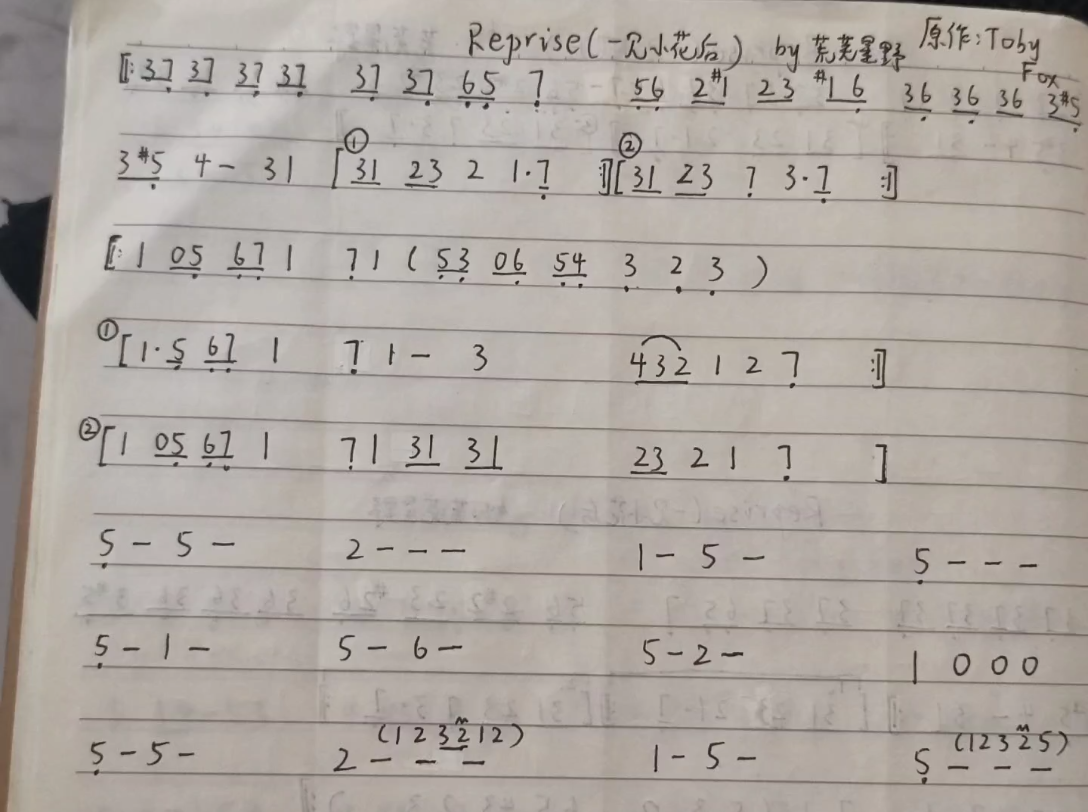 Reprise(一只小花后) by 荒芜星野 原作:Toby Fox
[: 37 37 37 37 37 37 65 7 56 2#1 23 #16 36 36 36 3#5
3#5 4 - 31 ①[31 23 2 1·7 :]②[31 23 7 3·7 :]
[: 1 05 67 1 71 (53 06 54 3 2 3)
①[1·5 67 1 7 1 - 3 432 1 2 7 :]
②[1 05 67 1 71 31 31 23 2 1 7 ]
5 - 5 - 2 - - - 1 - 5 - 5 - - -
5 - 1 - 5 - 6 - 5 - 2 - 1 0 0 0
5 - 5 - 2 - - - (1 2 3 2 1 2) 1 - 5 - 5 - - - (1 2 3 2 5)